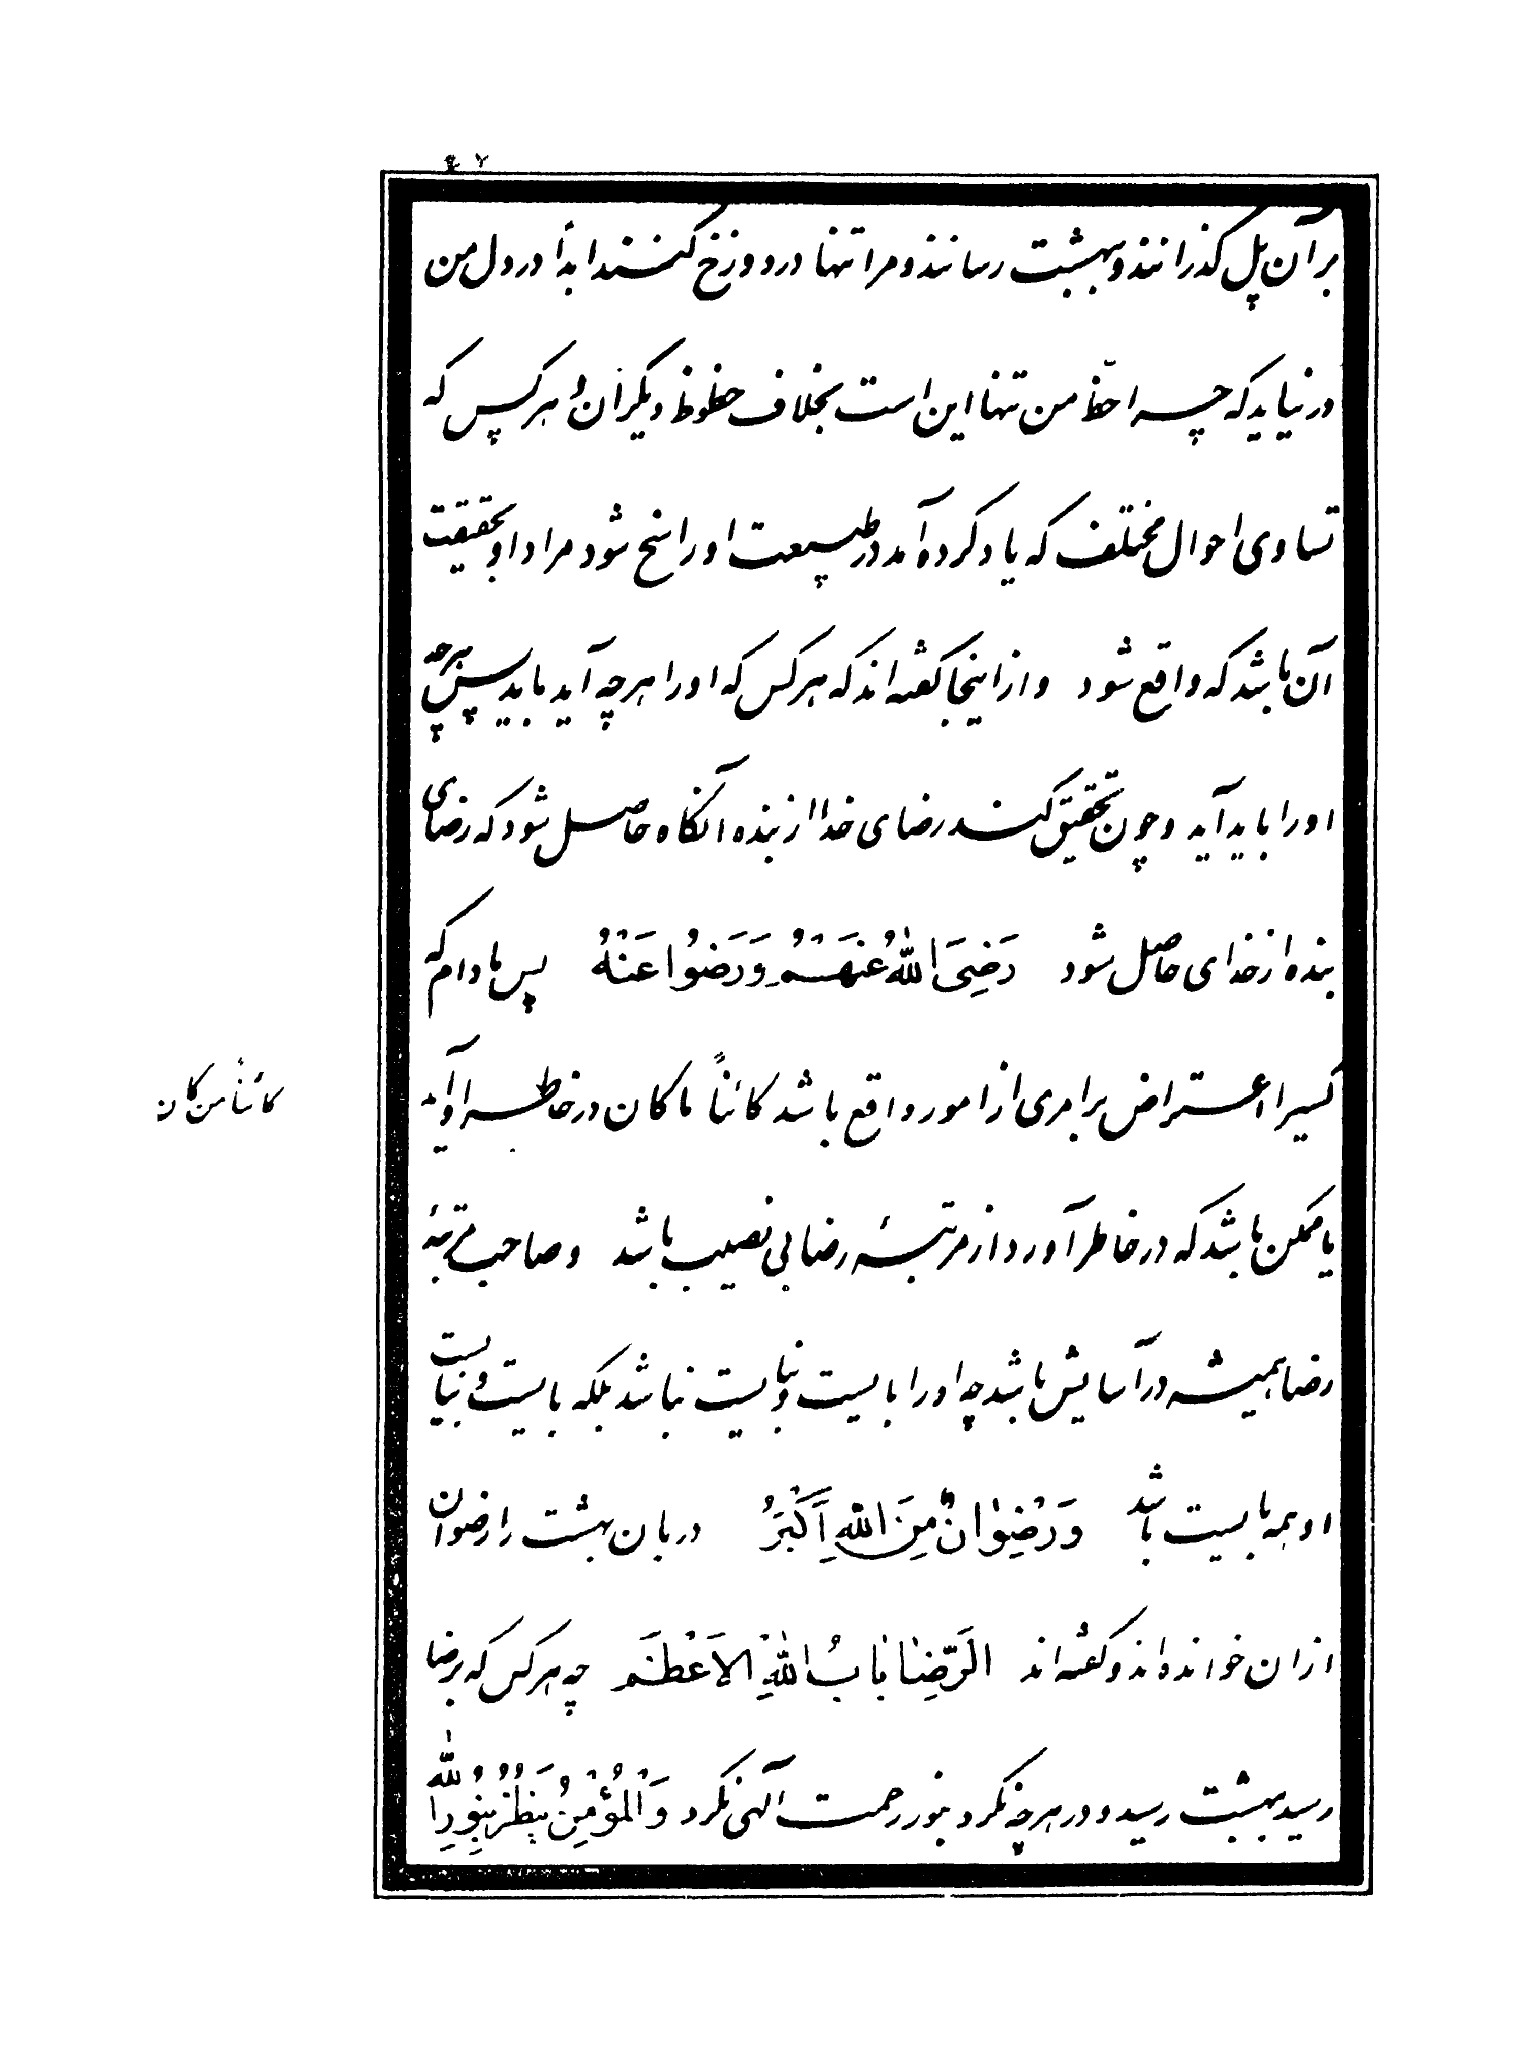 ۴۷
بر آن پل گذرانند و ببهشت رسانند و مرا تنها در دوزخ کنند ابداً در دل من
در نیاید که چرا حظ من تنها این است بخلاف حظوظ دیگران و هر کس که
تساوی احوال مختلف که یاد کرده آمد در طبیعت او راسخ شود مراد او بحقیقت
آن باشد که واقع شود و از اینجا گفته‌اند که هر کس که او را هر چه آید باید پس هر چه
او را باید آید و چون تحقیق کنند رضای خدا از بنده آنگاه حاصل شود که رضای
بنده از خدای حاصل شود رَضِیَ اللهُ عَنْهُمْ وَرَضُوا عَنْهُ پس مادام که
کسیرا اعتراض بر امری از امور واقع باشد کائناً ماکان در خاطر او آید
کائناً من کان
یا ممکن باشد که در خاطر آورد از مرتبهٔ رضا بی نصیب باشد و صاحب مرتبهٔ
رضا همیشه در آسایش باشد چه او را بایست و نبایست نباشد بلکه بایست و نبایست
او همه بایست باشد وَرِضْوانٌ مِنَ اللهِ اَکْبَرُ دربان بهشت را رضوان
از ان خوانده‌اند و گفته‌اند الرِّضا بابُ اللهِ الاَعْظَم چه هر کس که برضا
رسید ببهشت رسید و در هر چه نگرد بنور رحمت آلهی نگرد وَالْمُؤْمِنُ یَنْظُرُ بِنُورِاللهِ